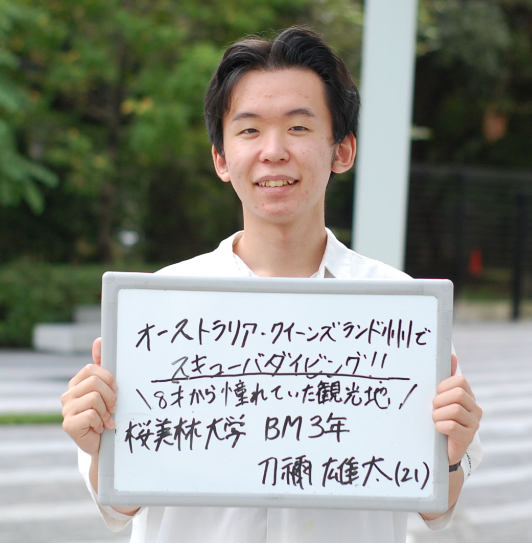 オーストラリア・クイーンズランド州で
スキューバダイビング!!
\8才から憧れていた観光地!
桜美林大学 BM3年
刀禰 雄太(21)